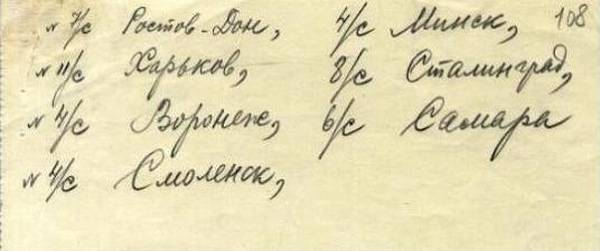 № 7/с Ростов-Дон, 4/с Минск, 108
№ 11/с Харьков, 8/с Сталинград,
№ 4/с Воронеж, 6/с Самара
№ 4/с Смоленск,